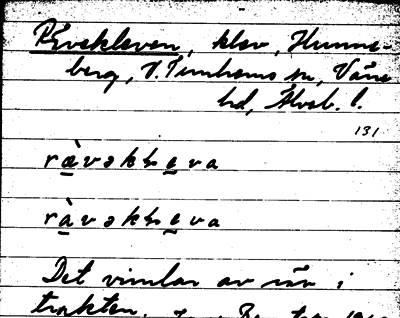 Rävekleven, klev, Hunne-
berg, V. Tunhems sn, Väne
hd, Älvsb. l.
131
rävəkleva
ràvəkleva
Det vimlar av räv i
trakten.